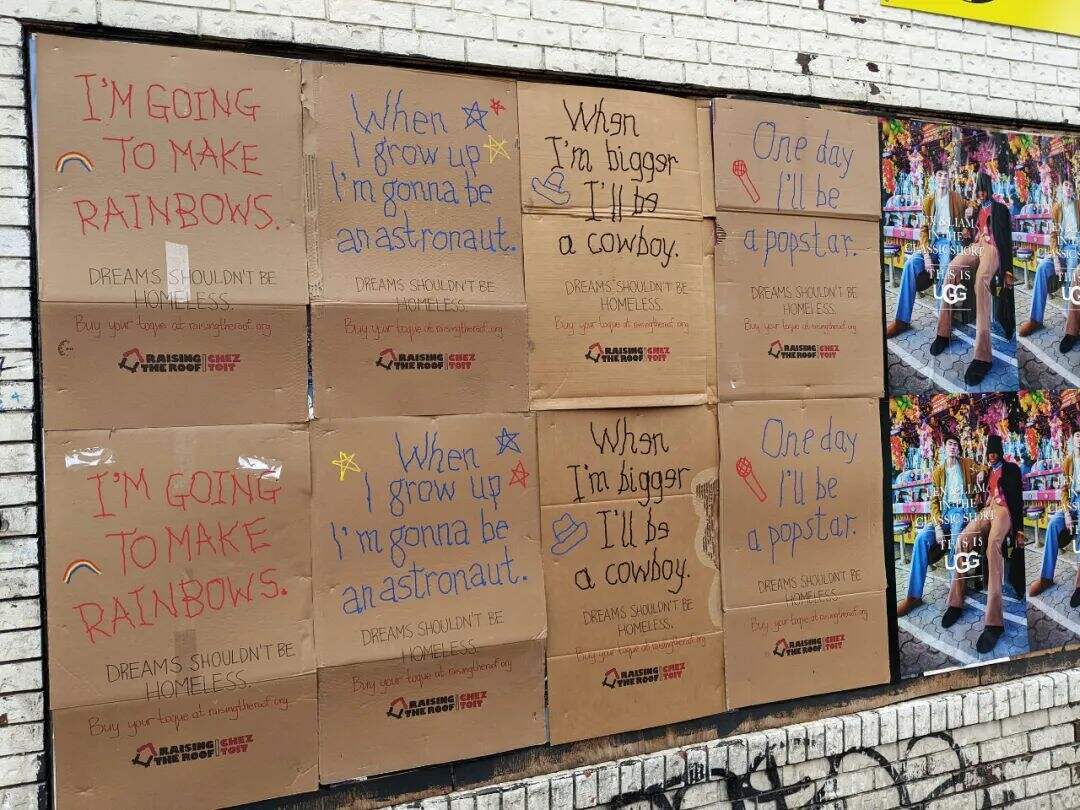 I'M GOING
TO MAKE
RAINBOWS.
DREAMS SHOULDN'T BE
HOMELESS.
Buy your toque at raisingtheroof.org
RAISING THE ROOF | CHEZ TOIT
When
I grow up
I'm gonna be
an astronaut.
DREAMS SHOULDN'T BE
HOMELESS.
Buy your toque at raisingtheroof.org
RAISING THE ROOF | CHEZ TOIT
When
I'm bigger
I'll be
a cowboy.
DREAMS SHOULDN'T BE
HOMELESS.
Buy your toque at raisingtheroof.org
RAISING THE ROOF | CHEZ TOIT
One day
I'll be
a popstar.
DREAMS SHOULDN'T BE
HOMELESS.
Buy your toque at raisingtheroof.org
RAISING THE ROOF | CHEZ TOIT
& LIAM
IN THE
CLASSIC SHORT
THIS IS
UGG
I'M GOING
TO MAKE
RAINBOWS.
DREAMS SHOULDN'T BE
HOMELESS.
Buy your toque at raisingtheroof.org
RAISING THE ROOF | CHEZ TOIT
When
I grow up
I'm gonna be
an astronaut.
DREAMS SHOULDN'T BE
HOMELESS.
Buy your toque at raisingtheroof.org
RAISING THE ROOF | CHEZ TOIT
When
I'm bigger
I'll be
a cowboy.
DREAMS SHOULDN'T BE
HOMELESS.
Buy your toque at raisingtheroof.org
RAISING THE ROOF | CHEZ TOIT
One day
I'll be
a popstar.
DREAMS SHOULDN'T BE
HOMELESS.
Buy your toque at raisingtheroof.org
RAISING THE ROOF | CHEZ TOIT
& LIAM
IN THE
CLASSIC SHORT
THIS IS
UGG